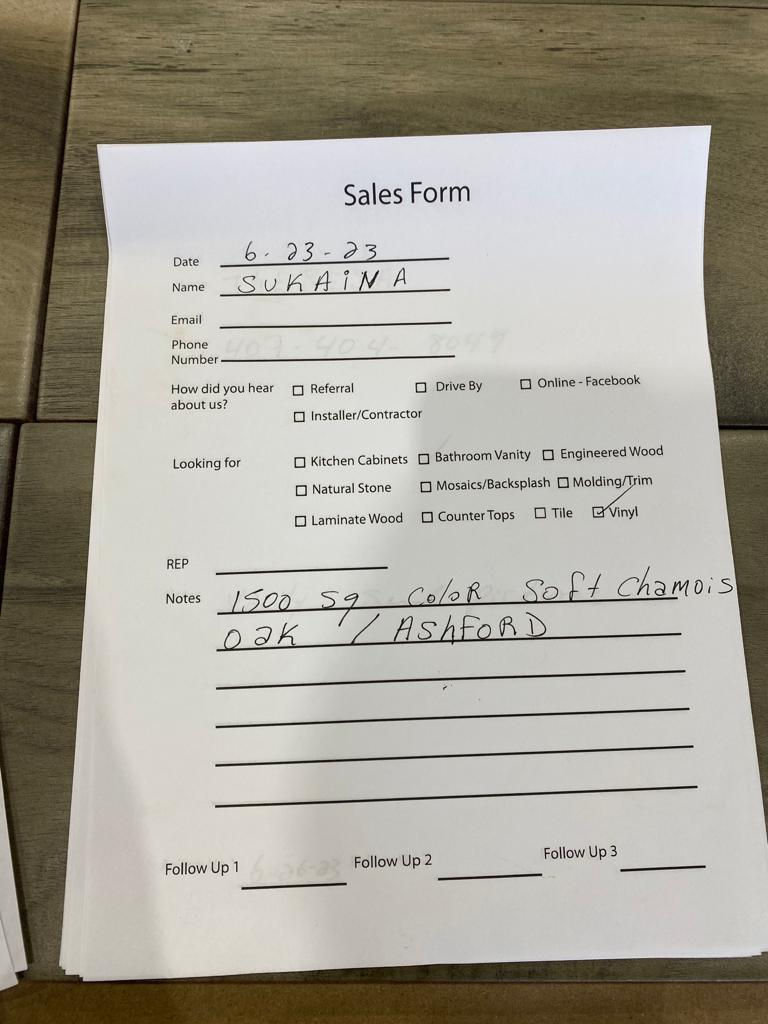 Sales Form
Date 6-23-23
Name SUKAiNA
Email
Phone
Number
How did you hear about us? ☐ Referral ☐ Drive By ☐ Online - Facebook
☐ Installer/Contractor
Looking for ☐ Kitchen Cabinets ☐ Bathroom Vanity ☐ Engineered Wood
☐ Natural Stone ☐ Mosaics/Backsplash ☐ Molding/Trim
☐ Laminate Wood ☐ Counter Tops ☐ Tile ☑ Vinyl
REP
Notes 1500 sq Color Soft Chamois
Oak / AShFORD
Follow Up 1 Follow Up 2 Follow Up 3